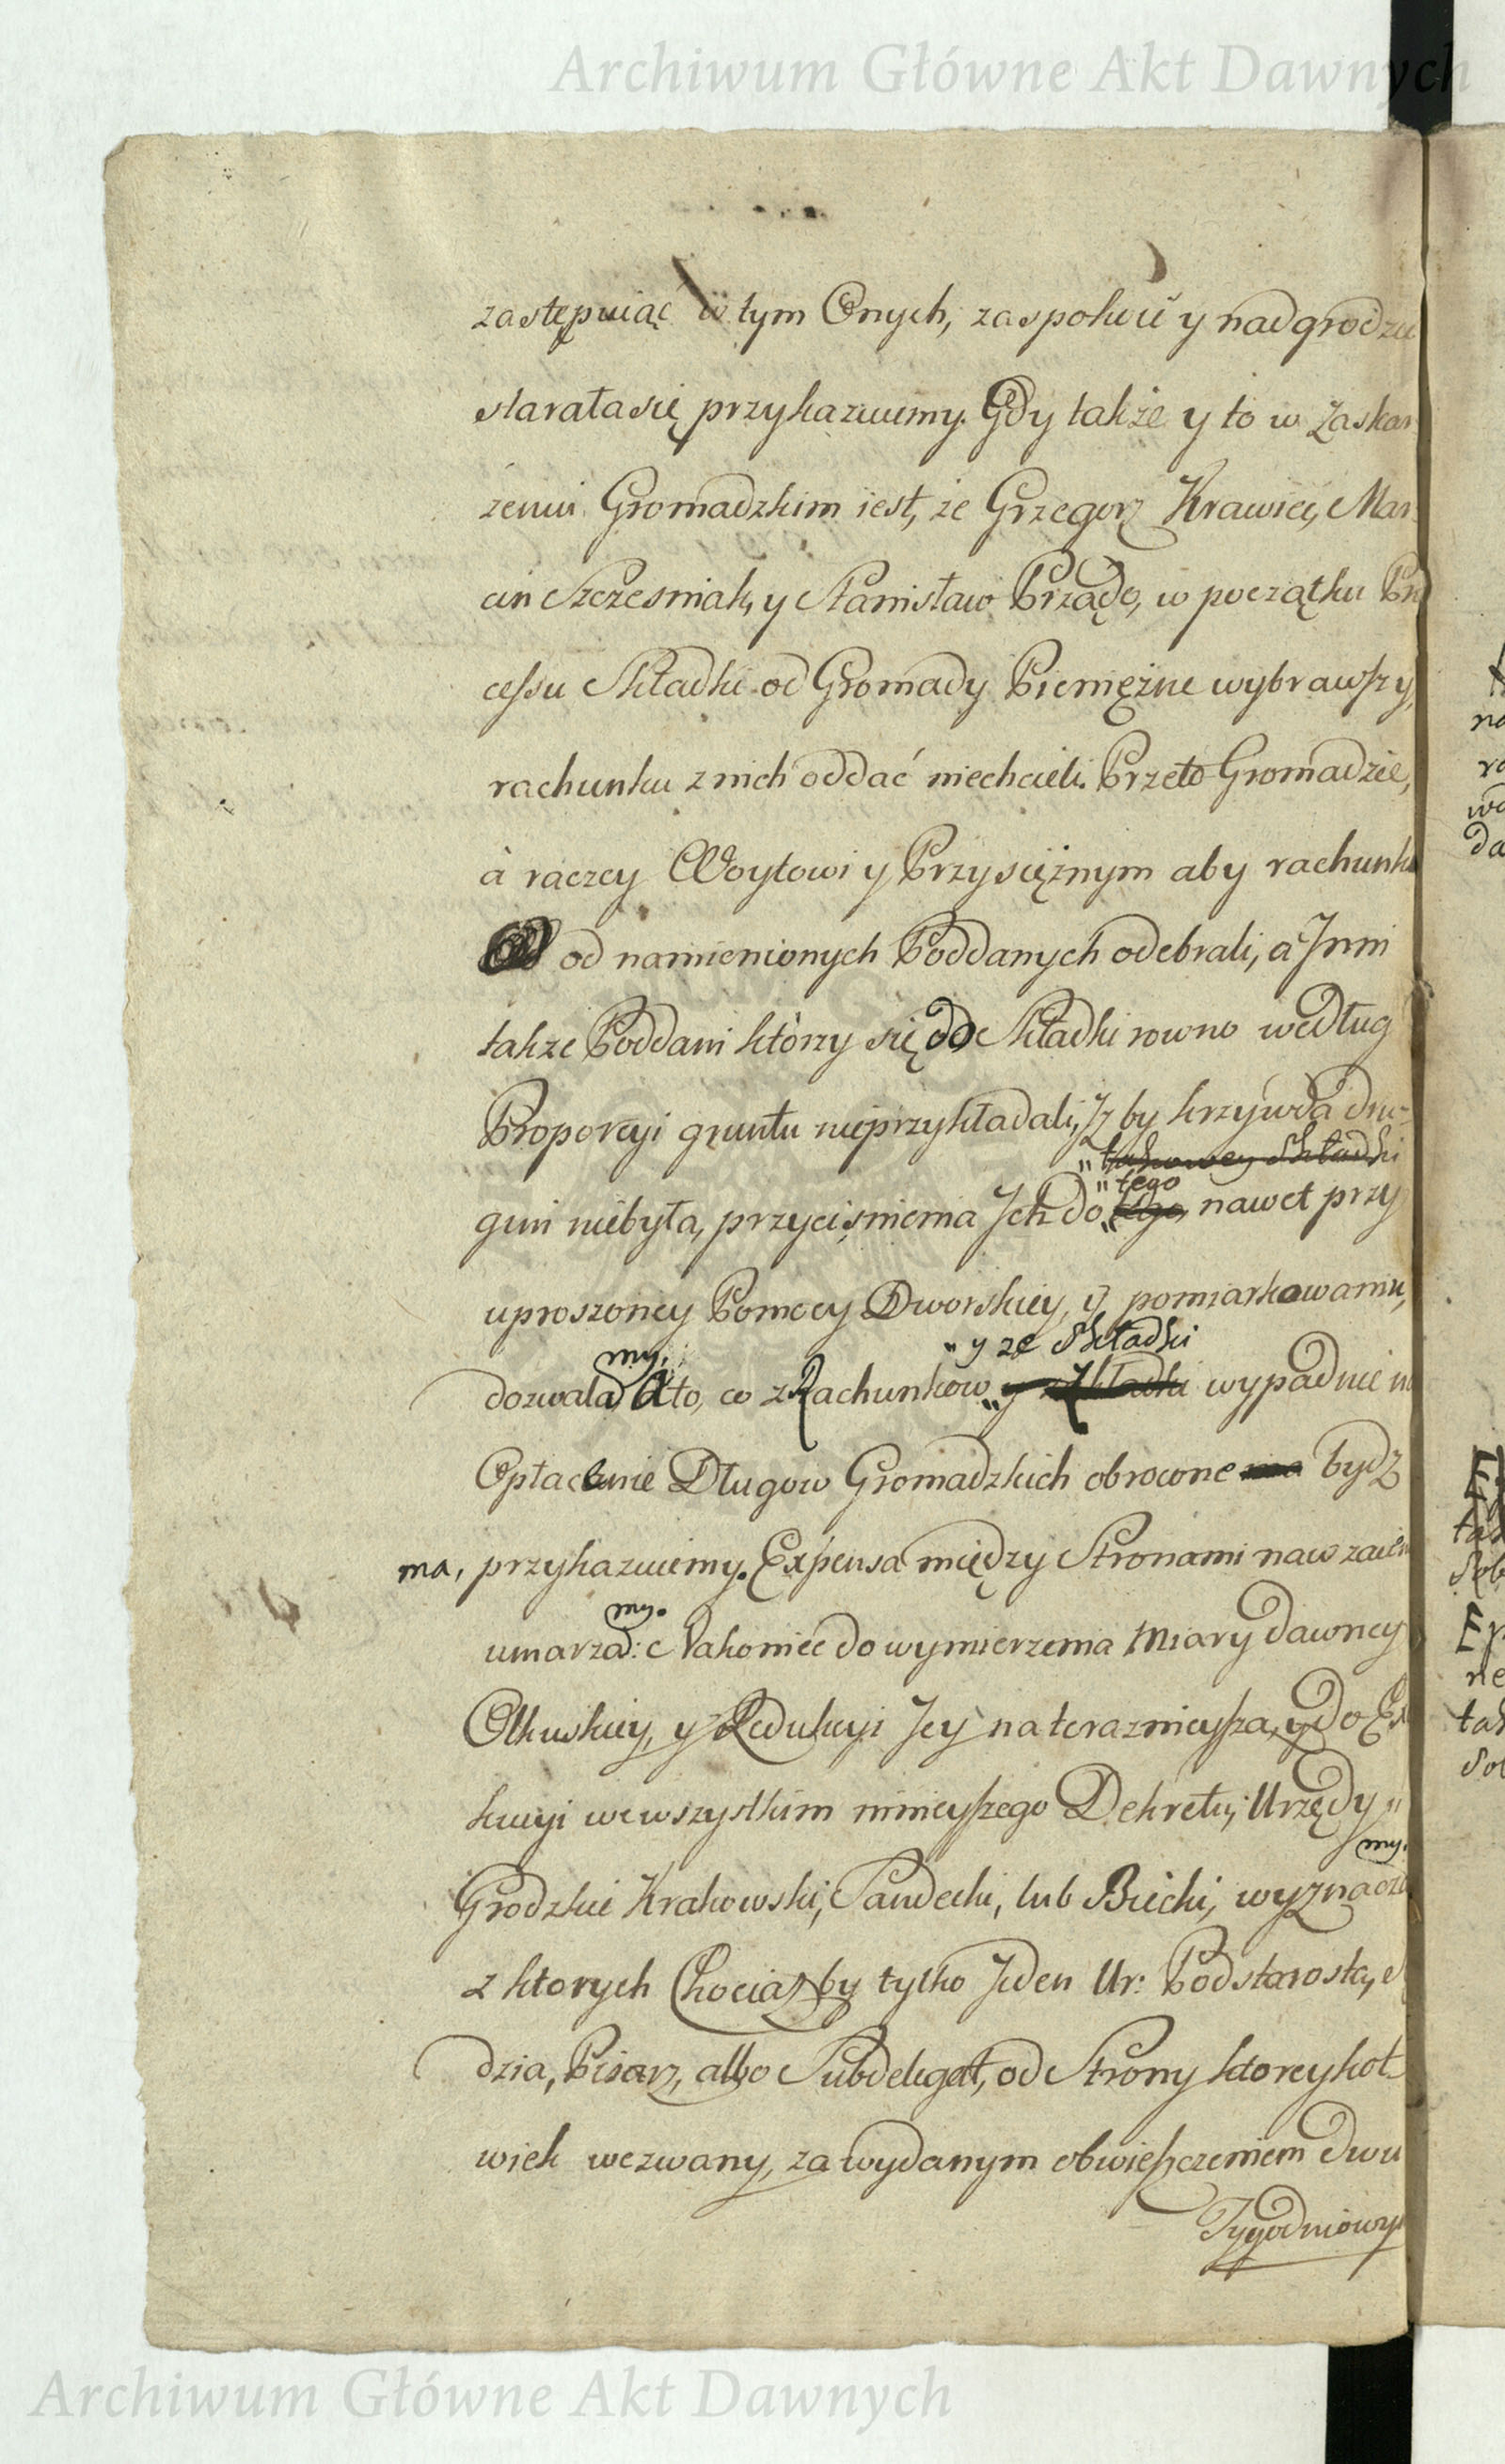 Archiwum Główne Akt Dawnych
zastępuiąć w tym Onych, zaspokoić y nadgrodzić
starała się przykazuiemy. Gdy także y to w Zaskar
żeniu Gromadzkim iest, że Grzegorz Krawiec, Mar
cin Szczesniak, y Stanisław Prządo, w początku Pro
cessu Składki od Gromady Pieniężne wybrawszy,
rachunku z nich oddać niechcieli. Przeto Gromadzie,
à raczey Woytowi y Przysiężnym aby rachunki
od namienionych Poddanych odebrali, a Inni
także Poddani którzy się do Składki rowno według
Proporcyi gruntu nieprzykładali, Iż by krzywda dru-
„takowey Składki
„tego
giui niebyła, przyciśnienia Ich do „tego, nawet przy
uproszoney Pomocy Dworskiey, y pomiarkowaniu,
my, „y ze Składki
dozwala A to, co z Rachunkow „y Składki wypadnie na
Opłacenie Długow Gromadzkich obrocone ma bydz
ma, przykazuiemy. Expensa między Stronami nawzaiem
my.
umarza: Nakoniec do wymierzenia Miary dawney
Olkuskiey, y Redukcyi Jey na teraznieyszą, y do Exe
kucyi we wszystkim ninieyszego Dekretu, Urzędy „
my.
Grodzkie Krakowski, Sandecki, lub Biecki, wyznacza
z ktorych Chociażby tylko Jeden Ur: Podstarosta, Sę
dzia, Pisarz, albo Subdelegat, od Strony ktoreykol
wiek wezwany, za wydanym obwieszczeniem dwu
Tygodniowym
Archiwum Główne Akt Dawnych